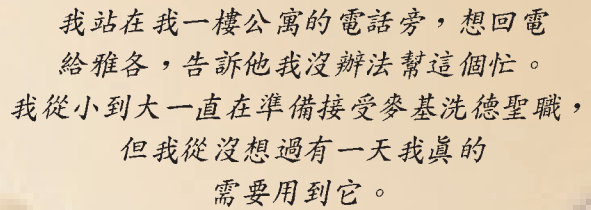 我站在我一樓公寓的電話旁，想回電
給雅各，告訴他我沒辦法幫這個忙。
我從小到大一直在準備接受麥基洗德聖職，
但我從沒想過有一天我眞的
需要用到它。